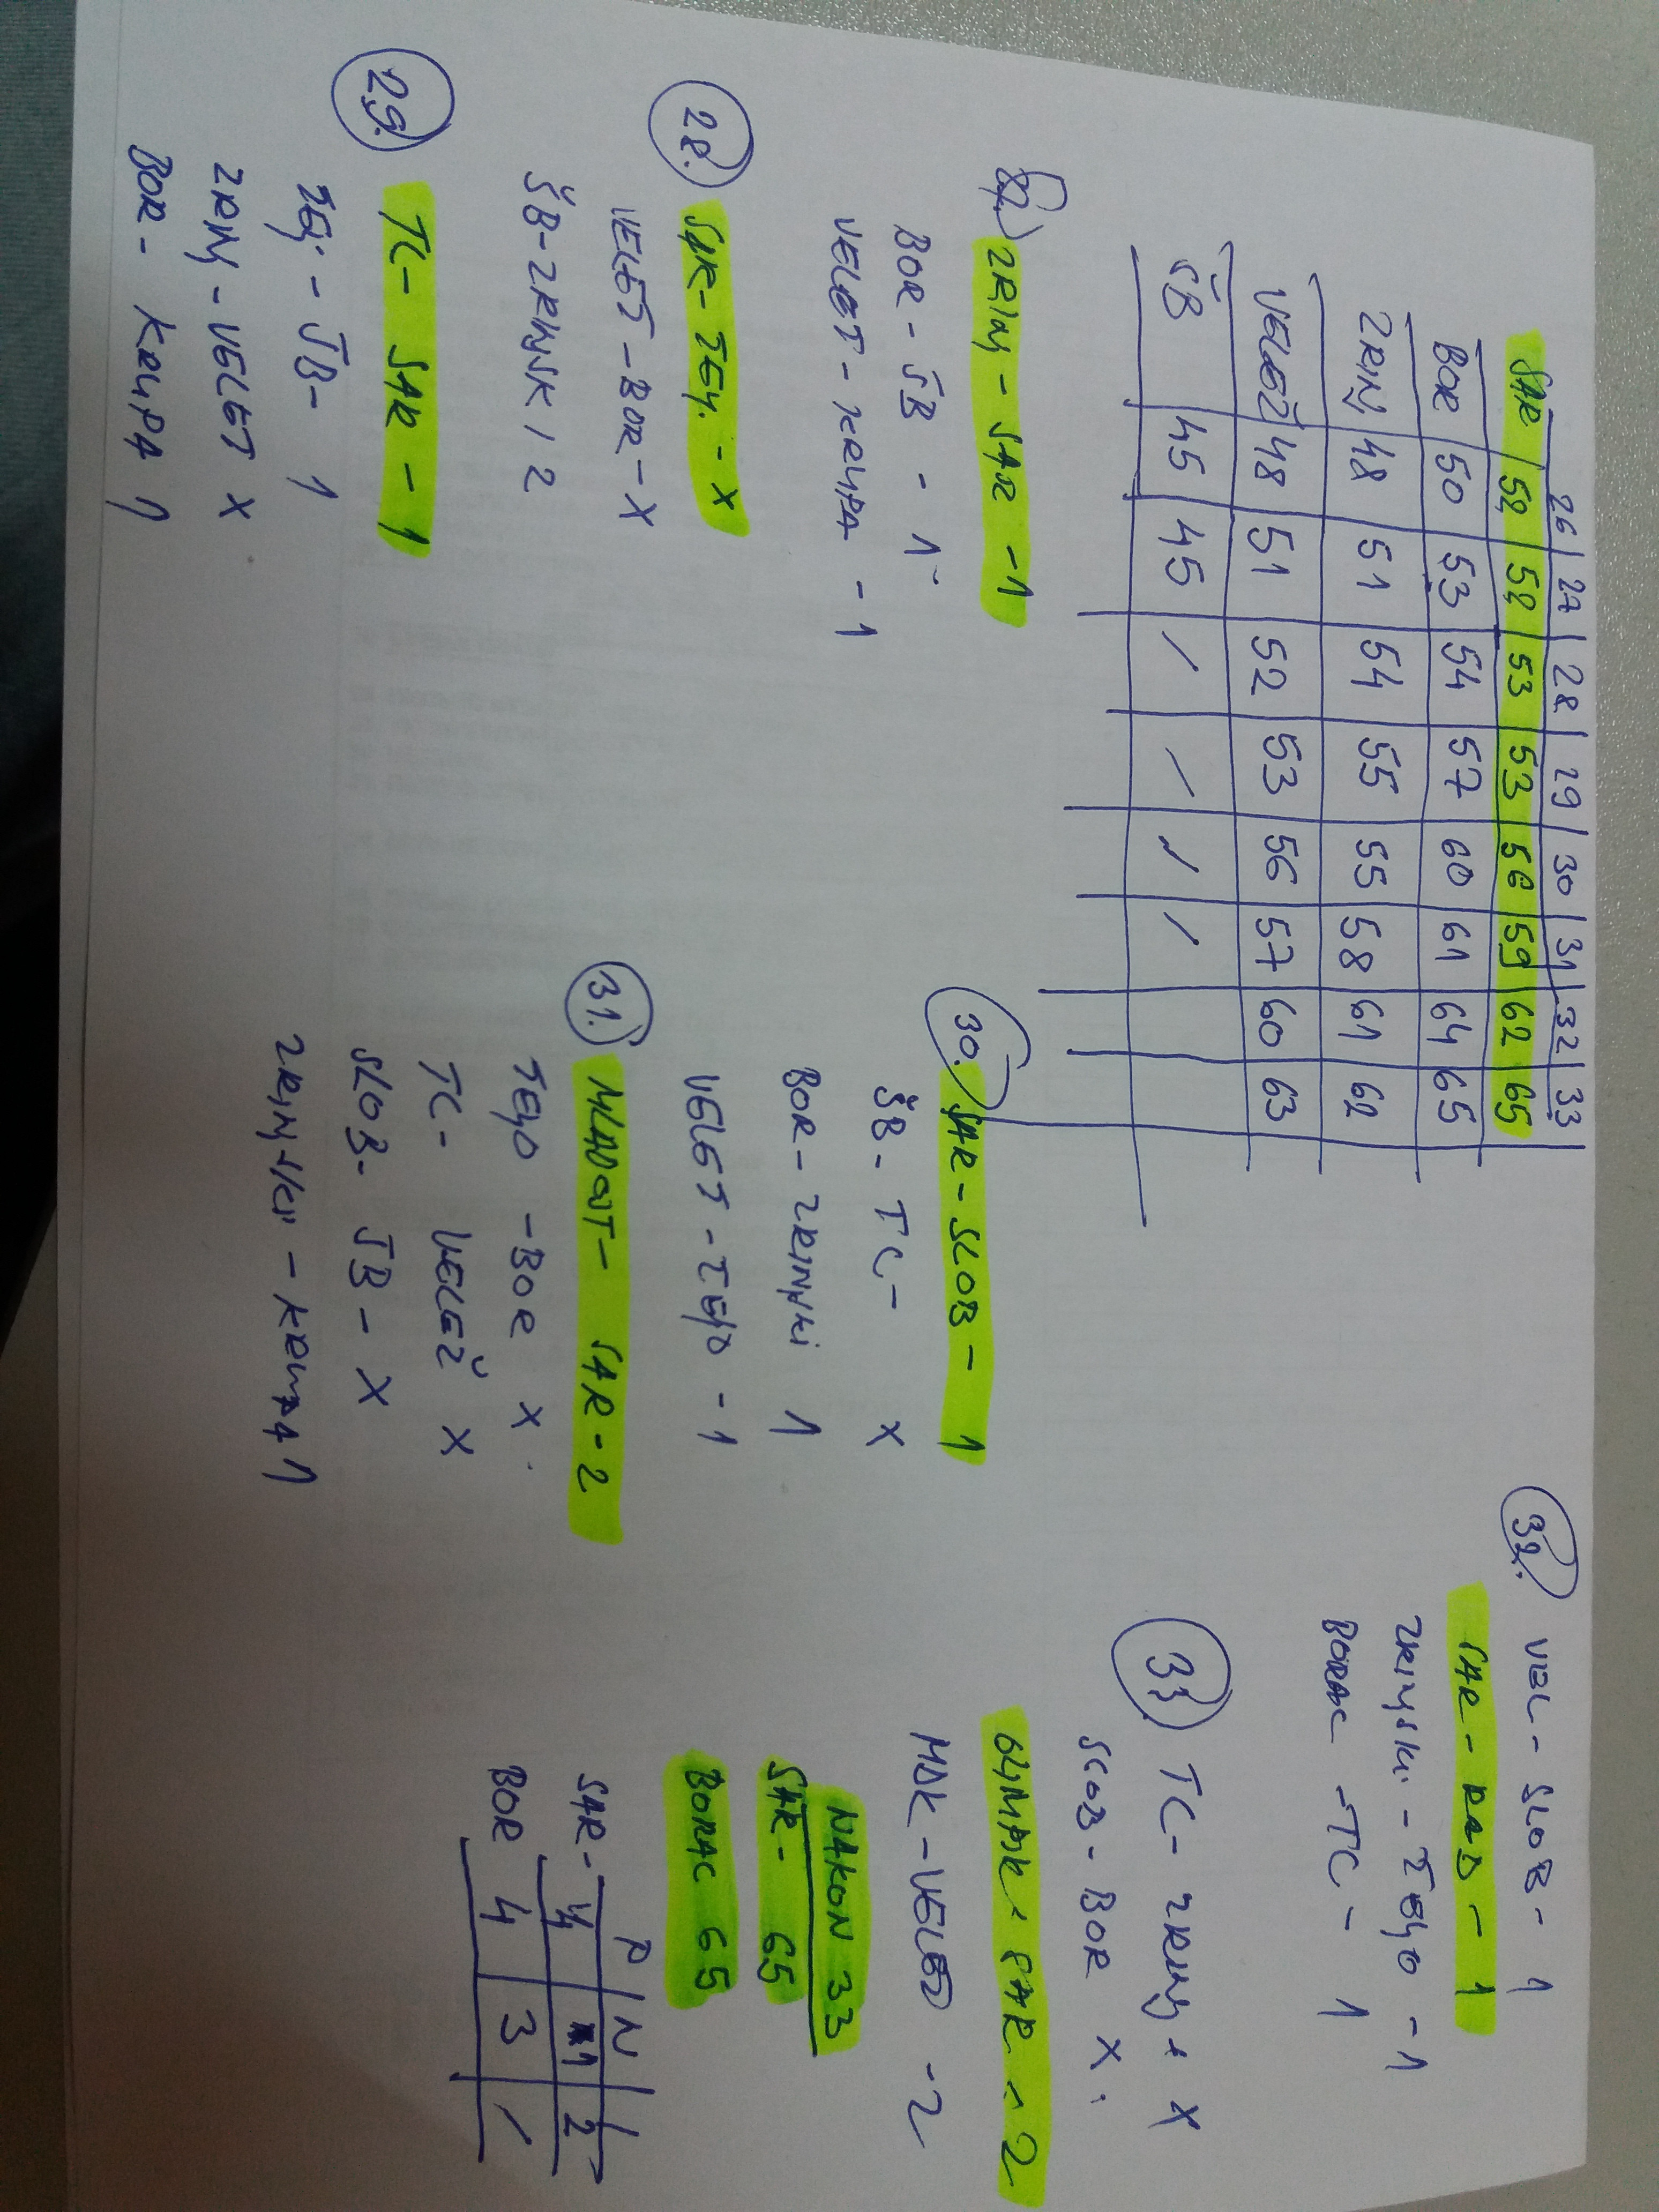 26 | 27 | 28 | 29 | 30 | 31 | 32 | 33
SAR | 52 | 52 | 53 | 53 | 56 | 59 | 62 | 65
BOR | 50 | 53 | 54 | 57 | 60 | 61 | 64 | 65
ZRINJ | 48 | 51 | 54 | 55 | 55 | 58 | 61 | 62
VELEŽ | 48 | 51 | 52 | 53 | 56 | 57 | 60 | 63
ŠB | 45 | 45 | / | / | / | /
27. ZRINJ - SAR - 1
BOR - ŠB - 1
VELEŽ - KRUPA - 1
28. SAR - ŽELJ. - X
VELEŽ - BOR - X
ŠB - ZRINJSK / 2
29. TC - SAR - 1
ŽELJ - ŠB - 1
ZRINJ - VELEŽ X
BOR - KRUPA 1
30. SAR - SLOB - 1
ŠB - TC - X
BOR - ZRINJSKI 1
VELEŽ - ŽELJO - 1
31. MLADOST - SAR - 2
ŽELJO - BOR X
TC - VELEŽ X
SLOB - ŠB - X
ZRINJSKI - KRUPA 1
32. VEL - SLOB - 1
SAR - RAD - 1
ZRINJSKI - ŽELJO - 1
BORAC - TC - 1
33. TC - ZRINJ X
SLOB - BOR X
OLIMPIK - SAR - 2
MDK - VELEŽ - 2
NAKON 33
SAR - 65
BORAC 65
P | N |
SAR - 4 | 1 | 2
BOR 4 | 3 | /